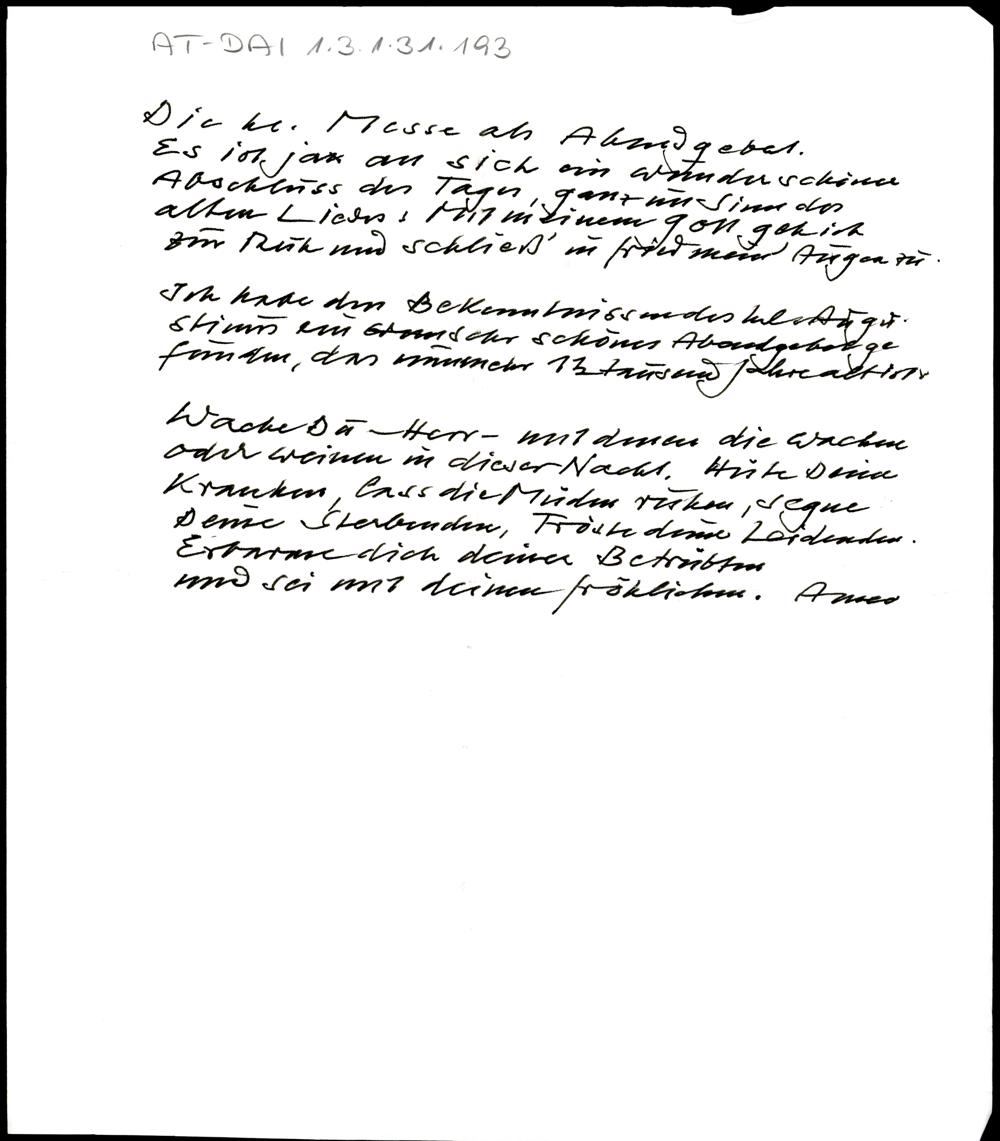 AT-DAI 1.3.1.31.193
Die hl. Messe als Abendgebet.
Es ist ja an sich ein wunderschöner
Abschluss des Tages, ganz im Sinn des
alten Liedes: Mit meinem Gott geh ich
zur Ruh und schließ' in Fried mein' Augen zu.
Ich habe den Bekenntnissen des hl. Augu-
stinus ein sehr schönes Abendgebet ge
funden, das nunmehr 1½ tausend Jahre alt ist.
Wache Du – Herr – mit denen die wachen
oder weinen in dieser Nacht. Hüte Deine
Kranken, lass die Müden ruhen, segne
Deine Sterbenden, Tröste deine Leidenden.
Erbarme dich deiner Betrübten
und sei mit deinen fröhlichen. Amen